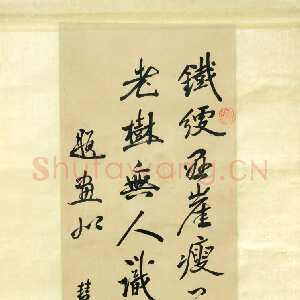 鐵綆垂崖瘦
老樹無人識
題畫
Shufawang.CN